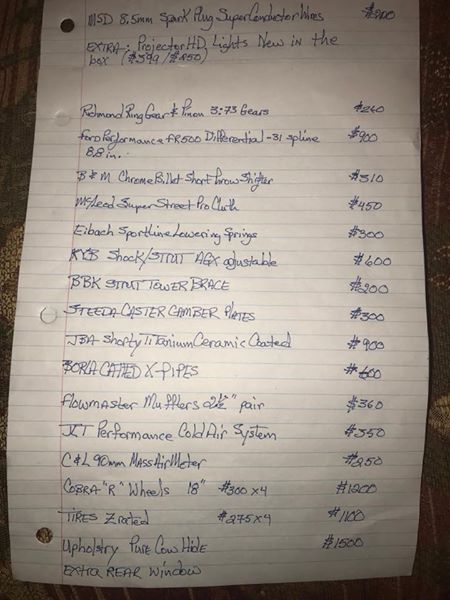 MSD 8.5mm Spark Plug SuperConductor Wires $200
EXTRA: Projector HD Lights New in the
box ($399/$250)
Richmond Ring Gear & Pinon 3:73 Gears $240
Ford Performance FR500 Differential -31 spline $900
8.8 in.
B & M Chrome Billet Short Throw Shifter $310
McLeod Super Street Pro Clutch $450
Eibach Sportline Lowering Springs $300
KYB Shock/STRUT AGX adjustable $600
BBK STRUT TOWER BRACE $200
STEEDA CASTER CAMBER PLATES $300
JBA Shorty Titanium Ceramic Coated $900
BORLA CATTED X-PIPES $600
Flowmaster Mufflers 2½" pair $360
JLT Performance Cold Air System $350
C & L 90mm Mass Air Meter $250
COBRA "R" Wheels 18" $300 x4 $1200
TIRES Z rated $275 x4 $1100
Upholstry Pure Cow Hide $1500
EXTRA REAR Window